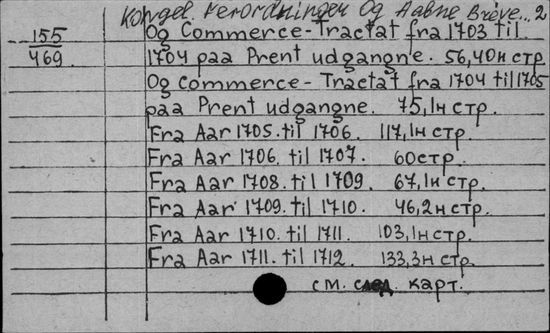 Kongel. Forordninger Og Aabne Breve... 2
155
469
Og Commerce-Tractat fra 1703 til
1704 paa Prent udgangne. 56,40н стр
Og commerce- Tractat fra 1704 til 1705
paa Prent udgangne. 75,1н стр.
Fra Aar 1705. til 1706. 117,1н стр.
Fra Aar 1706. til 1707. 60 стр.
Fra Aar 1708. til 1709. 67,1н стр.
Fra Aar 1709. til 1710. 46,2н стр.
Fra Aar 1710. til 1711. 103,1н стр.
Fra Aar 1711. til 1712. 133,3н стр.
см. след. карт.